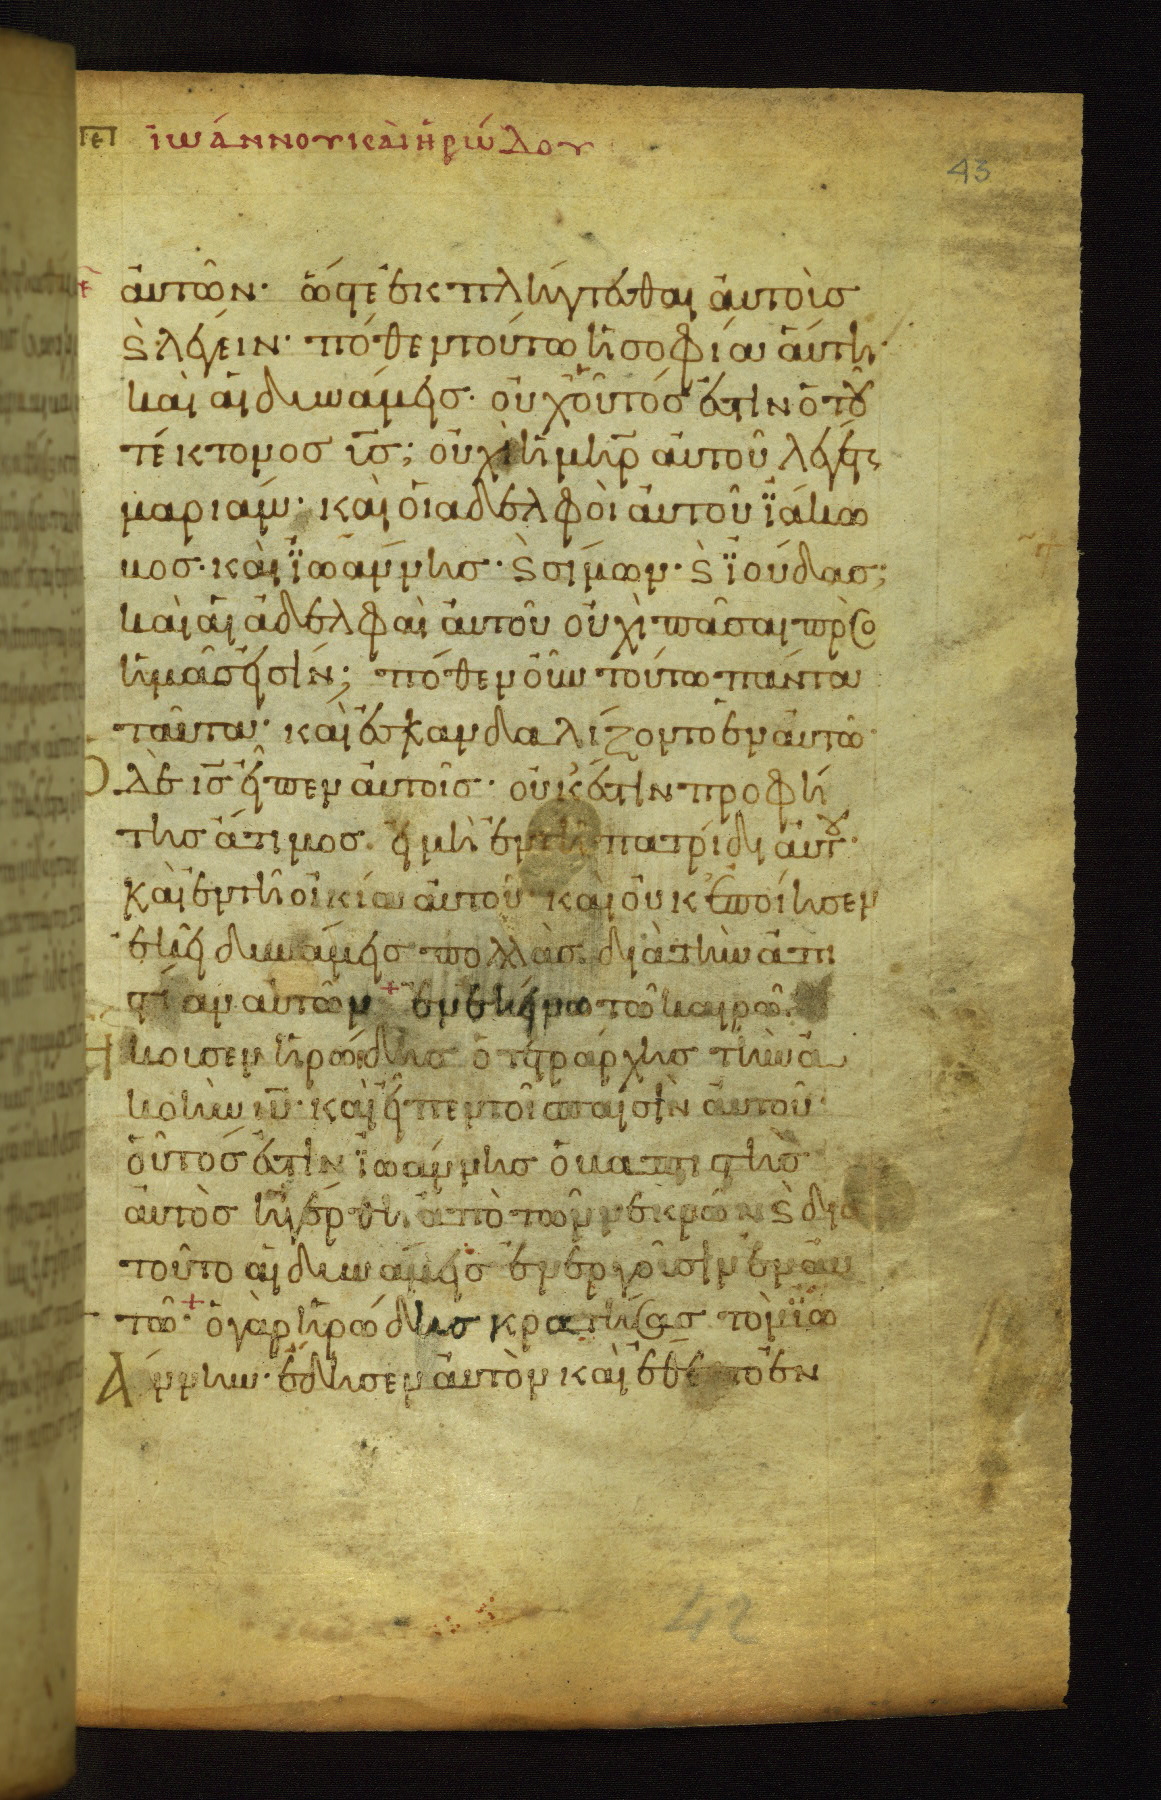 ιε ἰωάννου καὶ ἡρώδου
43
αὐτῶν· ὥστε ἐκπλήττεσθαι αὐτοὺς
ϗ λέγειν· πόθεν τούτω ἡ σοφία αὕτη
καὶ αἱ δυνάμεις· οὐχ οὗτός ἐστιν ὁ τοῦ
τέκτονος υς; οὐχὶ ἡ μηρ αὐτοῦ λέγεται
μαριάμ· καὶ οἱ ἀδελφοὶ αὐτοῦ ϊάκω
κος· καὶ ϊωάννης· ϗ σίμων· ϗ ϊούδας;
καὶ αἱ ἀδελφαὶ αὐτοῦ οὐχὶ πᾶσαι πρὸς
ἡμᾶς εἰσίν; πόθεν οὖν τούτω πάντα
ταῦτα· καὶ ἐσκανδαλίζοντο ἐν αὐτῶ·
Ὁ δὲ ις εἶπεν αὐτοῖς· οὐκ ἔστιν προφή
της ἄτιμος· εἰ μὴ ἐν τῆ πατρίδι αὐτοῦ·
καὶ ἐν τῆ οἰκία αὐτοῦ καὶ οὐκ ἐποίησεν
ἐκεῖ δυνάμεις πολλὰς διὰ τὴν ἀπι
στίαν αὐτῶν + ἐν ἐκείνω τῶ καιρῶ·
Ἤκουσεν ἡρώδης ὁ τετράρχης τὴν ἀ
κοὴν ιυ· καὶ εἶπεν τοῖς παισὶν αὐτοῦ·
οὗτός ἐστιν ϊωάννης ὁ βαπτιστὴς
αὐτὸς ἠγέρθη ἀπὸ τῶν νεκρῶν ϗ διὰ
τοῦτο αἱ δυνάμεις ἐνεργοῦσιν ἐν αὐ
τῶ· + ὁ γὰρ ἡρώδης κρατήσας τὸν ϊω
Άννην· ἔδησεν αὐτὸν καὶ ἔθετο ἐν
42